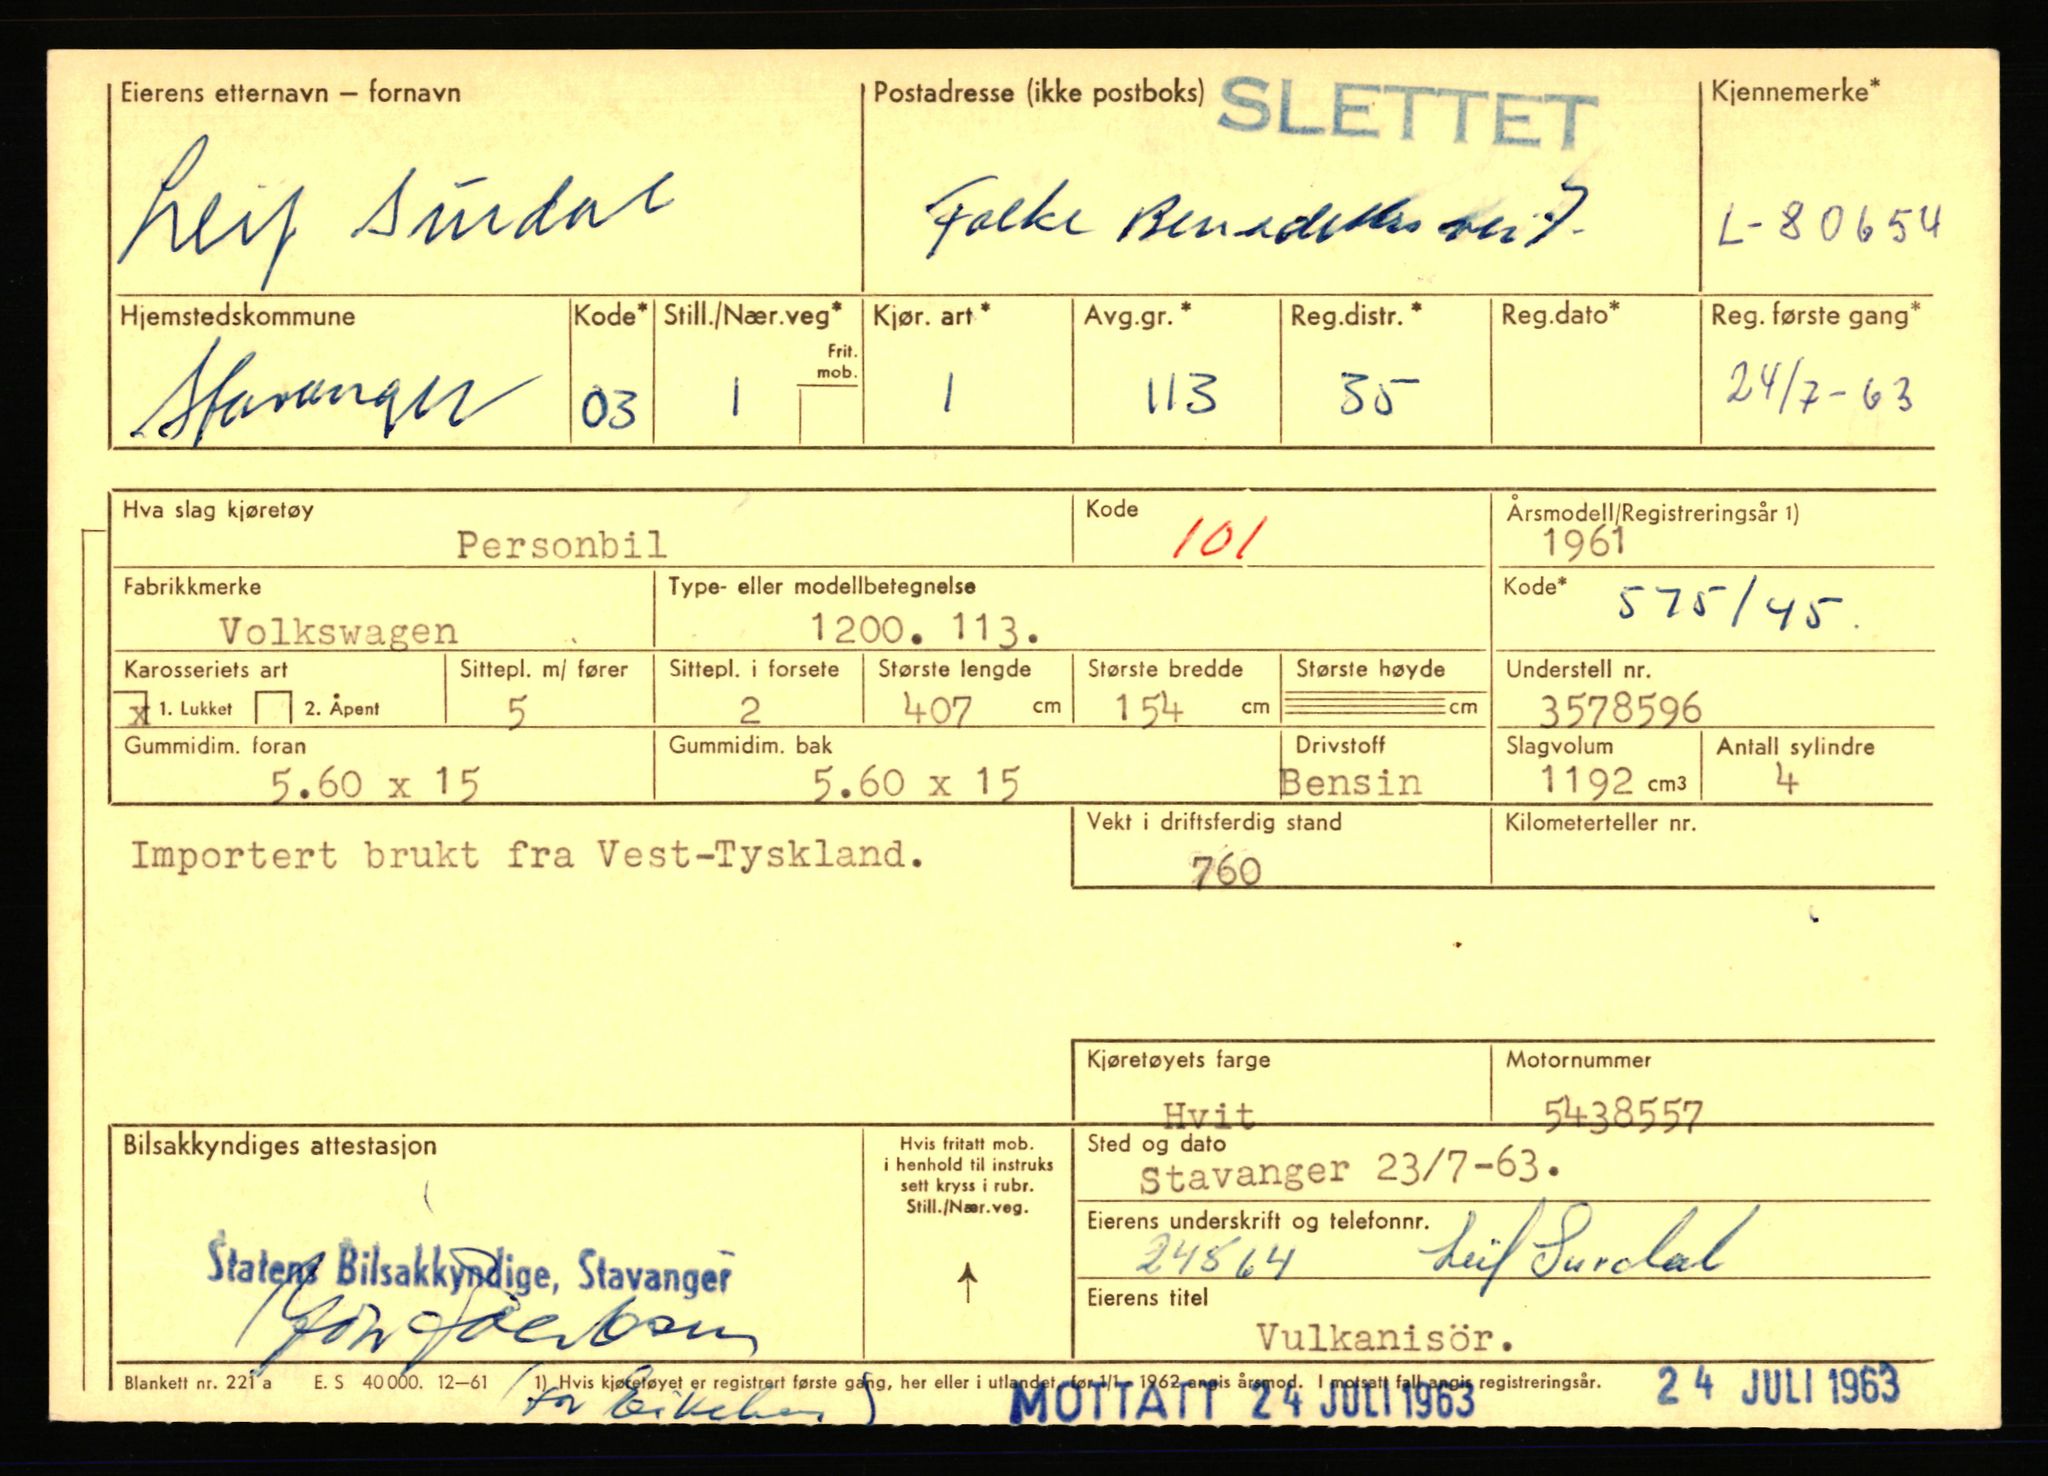 Eierens etternavn – fornavn
Postadresse (ikke postboks)
SLETTET
Kjennemerke*
Leif Surdal
Folke Bernadottes vei 7.
L-80654
Hjemstedskommune
Kode*
Still./Nær.veg*
Frit. mob.
Kjør. art*
Avg.gr.*
Reg.distr.*
Reg.dato*
Reg. første gang*
Stavanger
03
1
1
113
35
24/7-63
Hva slag kjøretøy
Kode
Årsmodell/Registreringsår 1)
Personbil
101
1961
Fabrikkmerke
Type- eller modellbetegnelse
Kode*
Volkswagen
1200. 113.
575/45.
Karosseriets art
Sittepl. m/ fører
Sittepl. i forsete
Største lengde
Største bredde
Største høyde
Understell nr.
x 1. Lukket
2. Åpent
5
2
407 cm
154 cm
cm
3578596
Gummidim. foran
Gummidim. bak
Drivstoff
Slagvolum
Antall sylindre
5.60 x 15
5.60 x 15
Bensin
1192 cm3
4
Importert brukt fra Vest-Tyskland.
Vekt i driftsferdig stand
Kilometerteller nr.
760
Kjøretøyets farge
Motornummer
Hvit
5438557
Bilsakkyndiges attestasjon
Hvis fritatt mob.
i henhold til instruks
sett kryss i rubr.
Still./Nær.veg.
Sted og dato
Stavanger 23/7-63.
Eierens underskrift og telefonnr.
24564 Leif Surdal
Statens Bilsakkyndige, Stavanger
Eierens titel
Vulkanisör.
Blankett nr. 221 a E. S 40 000. 12–61 1) Hvis kjøretøyet er registrert første gang, her eller i utlandet, før 1/1 – 1962 angis årsmod. I motsatt fall angis registreringsår.
for
MOTTATT 24 JULI 1963
24 JULI 1963